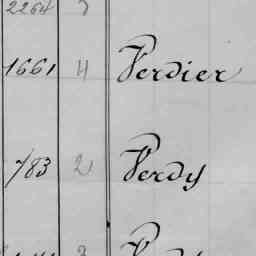 2264
1661 4 Verdier
783 2 Verdy